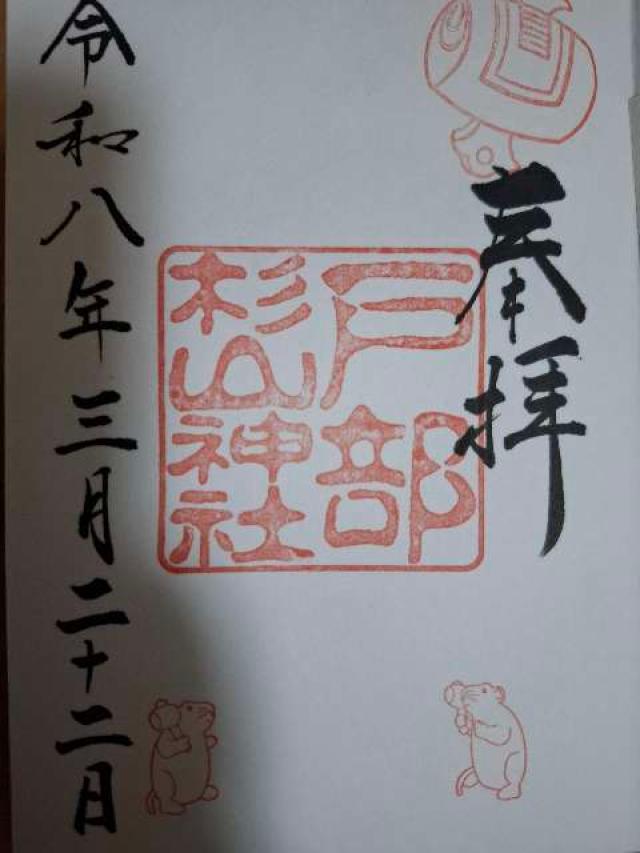 奉拝
戸部
杉山神社
令和八年三月二十二日